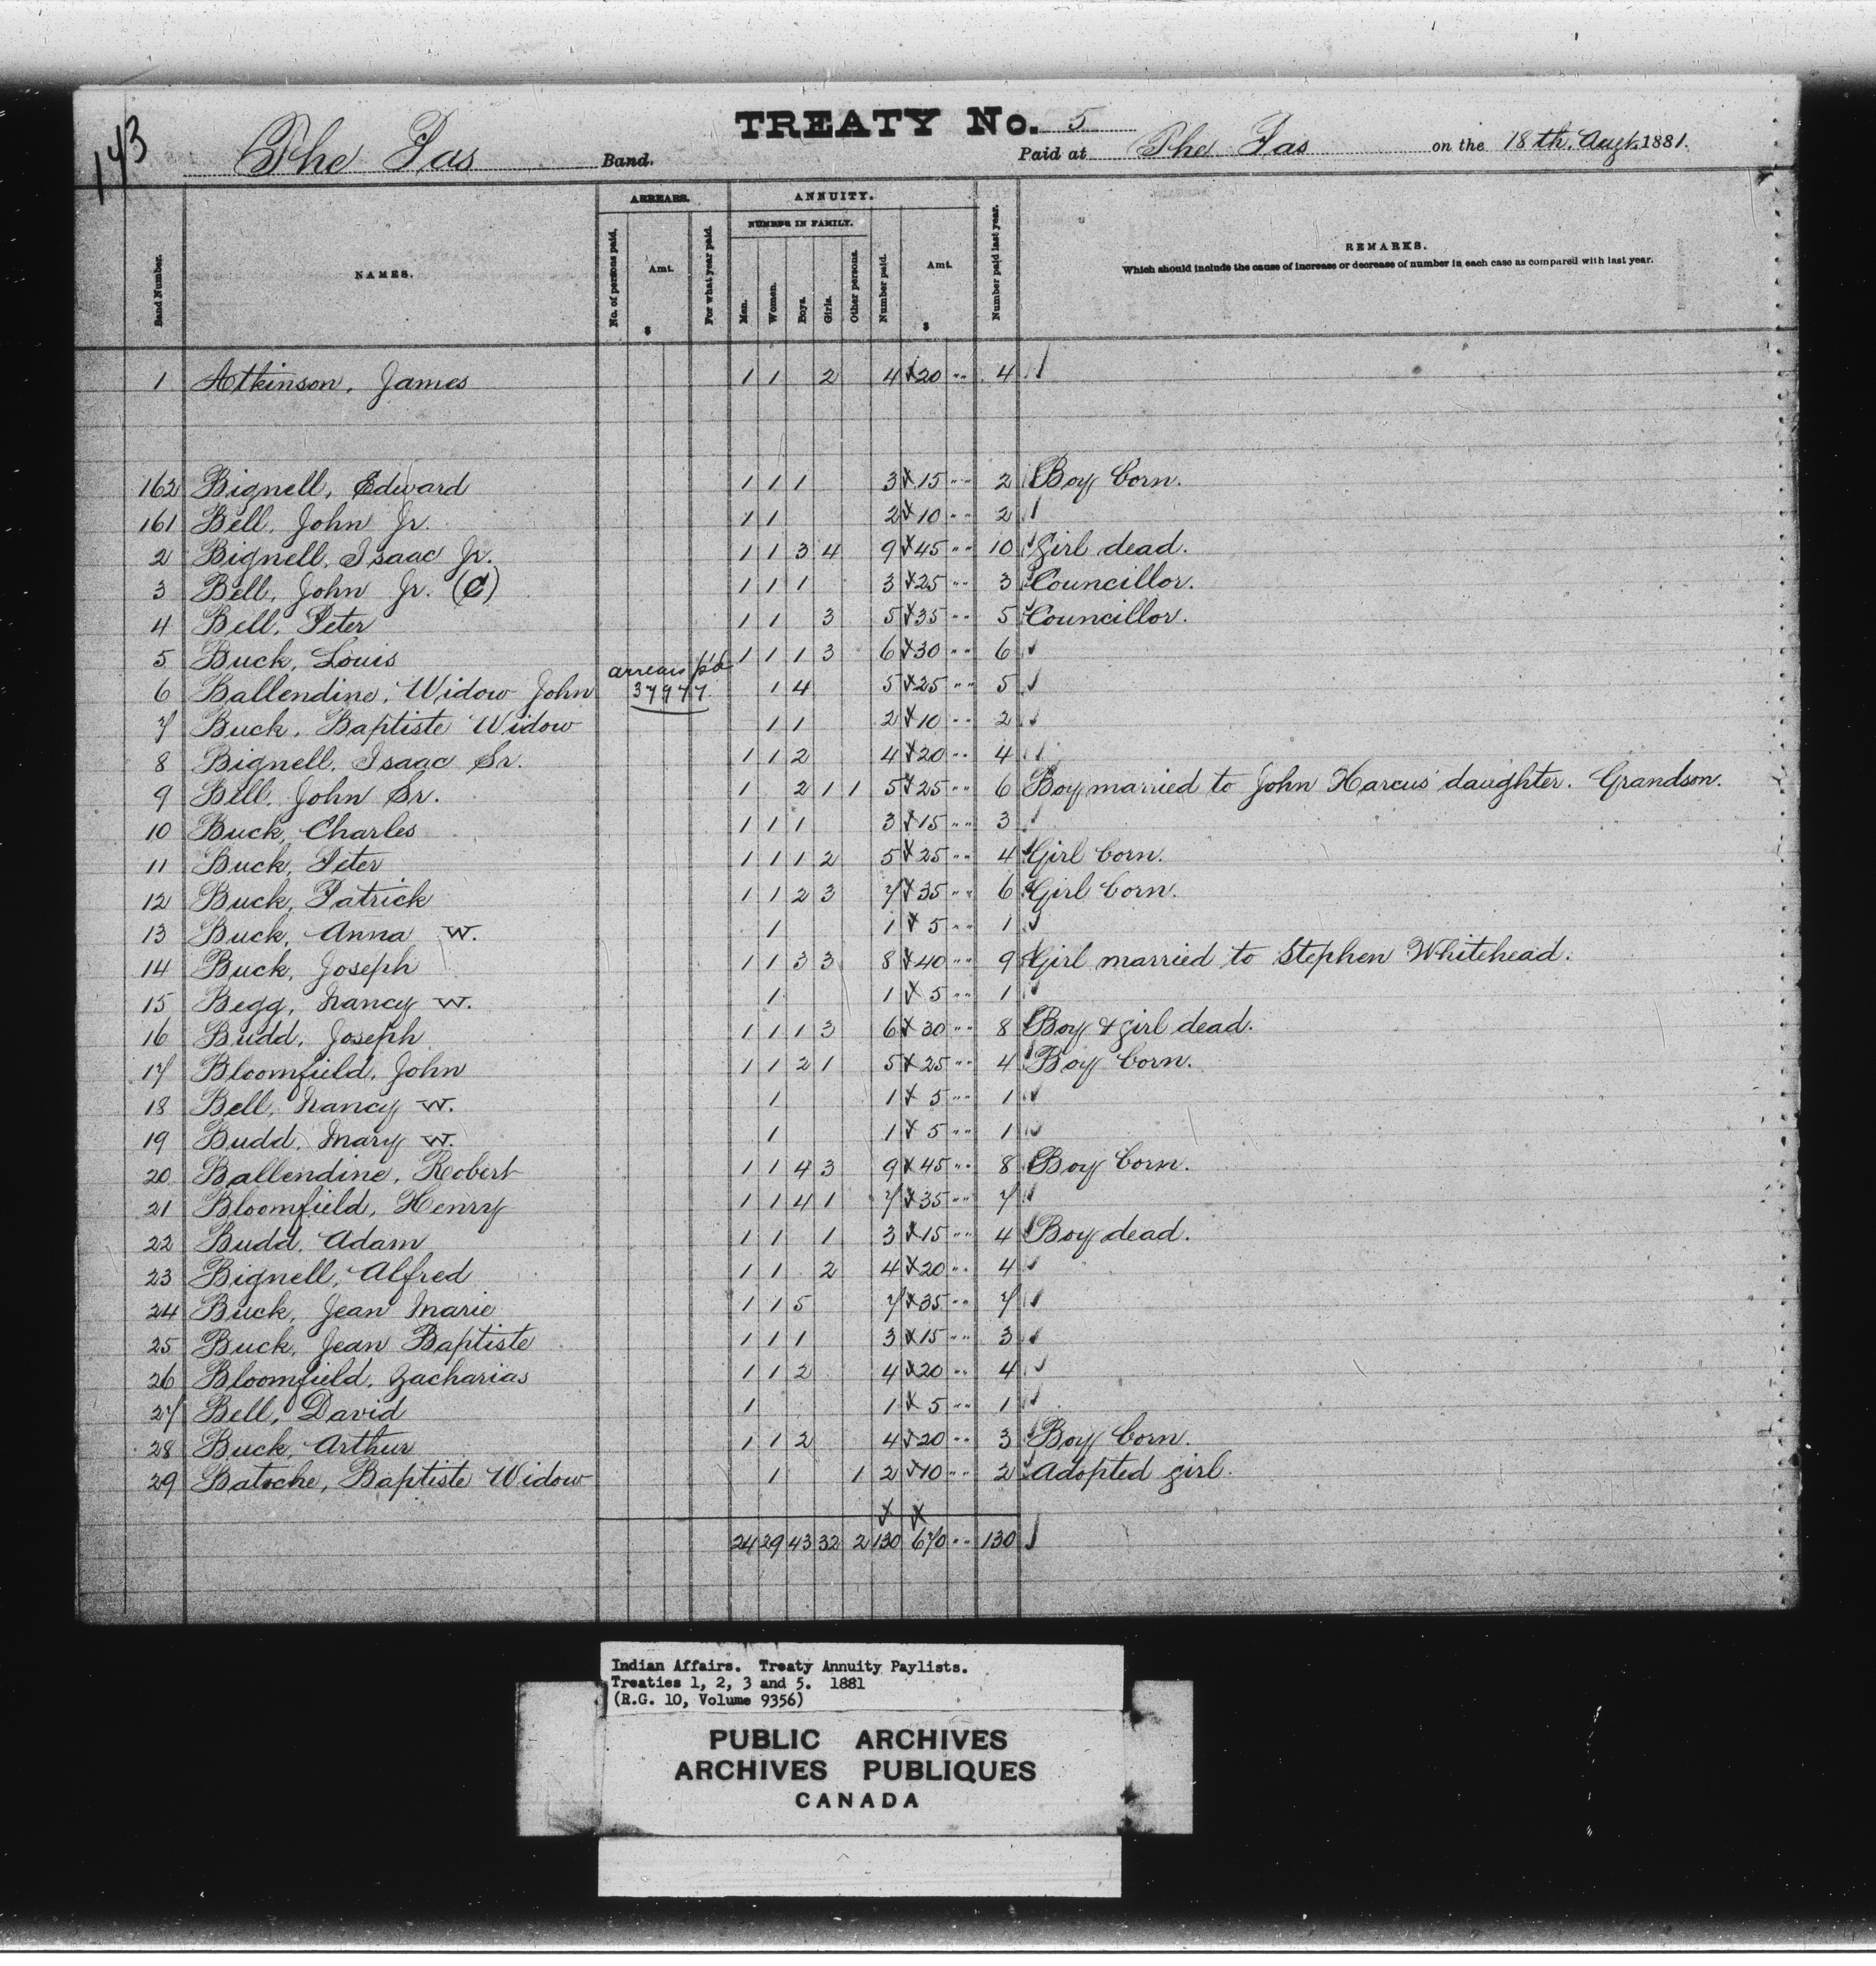 143
TREATY No. 5
The Pas Band. Paid at The Pas on the 18th. Augt. 1881.
Band Number. NAMES. ARREARS. No. of persons paid. Amt. $ For what year paid. ANNUITY. NUMBER IN FAMILY. Men. Women. Boys. Girls. Other persons. Number paid. Amt. $ Number paid last year. REMARKS.
Which should include the cause of increase or decrease of number in each case as compared with last year.
1 Atkinson, James 1 1 2 4 20 " 4
162 Bignell, Edward 1 1 1 3 15 " 2 Boy born.
161 Bell, John Jr. 1 1 2 10 " 2
2 Bignell, Isaac Jr. 1 1 3 4 9 45 " 10 Girl dead.
3 Bell, John Jr. (C) 1 1 1 3 25 " 3 Councillor.
4 Bell, Peter 1 1 3 5 35 " 5 Councillor.
5 Buck, Louis 1 1 1 3 6 30 " 6
arrears p'd
6 Ballendine, Widow John 37977 1 4 5 25 " 5
7 Buck, Baptiste Widow 1 1 2 10 " 2
8 Bignell, Isaac Sr. 1 1 2 4 20 " 4
9 Bell, John Sr. 1 2 1 1 5 25 " 6 Boy married to John Harcus' daughter. Grandson.
10 Buck, Charles 1 1 1 3 15 " 3
11 Buck, Peter 1 1 1 2 5 25 " 4 Girl born.
12 Buck, Patrick 1 1 2 3 7 35 " 6 Girl born.
13 Buck, Anna W. 1 1 5 " 1
14 Buck, Joseph 1 1 3 3 8 40 " 9 Girl married to Stephen Whitehead.
15 Begg, Nancy W. 1 1 5 " 1
16 Budd, Joseph 1 1 1 3 6 30 " 8 Boy & girl dead.
17 Bloomfield, John 1 1 2 1 5 25 " 4 Boy born.
18 Bell, Nancy W. 1 1 5 " 1
19 Budd, Mary W. 1 1 5 " 1
20 Ballendine, Robert 1 1 4 3 9 45 " 8 Boy born.
21 Bloomfield, Henry 1 1 4 1 7 35 " 7
22 Budd, Adam 1 1 1 3 15 " 4 Boy dead.
23 Bignell, Alfred 1 1 2 4 20 " 4
24 Buck, Jean Marie 1 1 5 7 35 " 7
25 Buck, Jean Baptiste 1 1 1 3 15 " 3
26 Bloomfield, Zacharias 1 1 2 4 20 " 4
27 Bell, David 1 1 5 " 1
28 Buck, Arthur 1 1 2 4 20 " 3 Boy born.
29 Batoche, Baptiste Widow 1 1 2 10 " 2 Adopted girl.
24 29 43 32 2 130 670 " 130
Indian Affairs. Treaty Annuity Paylists.
Treaties 1, 2, 3 and 5. 1881
(R.G. 10, Volume 9356)
PUBLIC ARCHIVES
ARCHIVES PUBLIQUES
CANADA